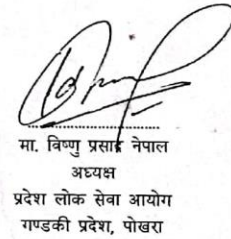 मा. विष्णु प्रसाद नेपाल
अध्यक्ष
प्रदेश लोक सेवा आयोग
गण्डकी प्रदेश, पोखरा